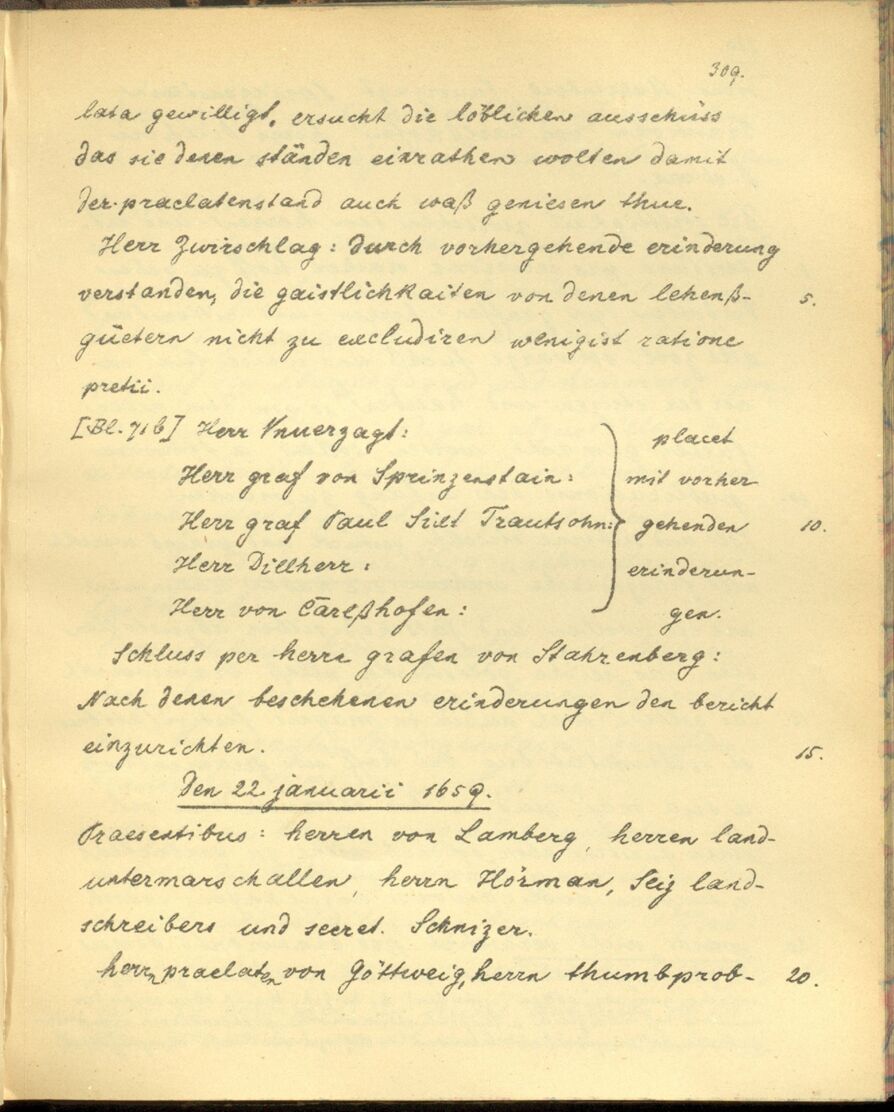 309.
lata gewilligt, ersucht die löblichen ausschüss
das sie denen ständen einrathen wolten damit
der praelatenstand auch waß geniesen thue.
Herr Zwirschlag: durch vorhergehende erinderung
verstanden, die gaistlichkaiten von denen lehenß- 5.
güetern nicht zu excludiren wenigist ratione
pretii.
[Bl. 71b] Herr Vnuerzagt: placet
Herr graf von Sprinzenstain: mit vorher
Herr graf Paul Sixt Trautsohn: gehenden 10.
Herr Dillherr: erinderun-
Herr von Carlßhofen: gen.
Schluss per herrn grafen von Stahrenberg:
Nach denen beschehenen erinderungen den bericht
einzurichten. 15.
Den 22 januarii 1659.
Praesentibus: herren von Lamberg, herren land-
untermarschallen, herrn Hörman, Seiz land-
schreibers und secret. Schnizer.
herrn praelaten von Göttweig, herrn thumbprob- 20.